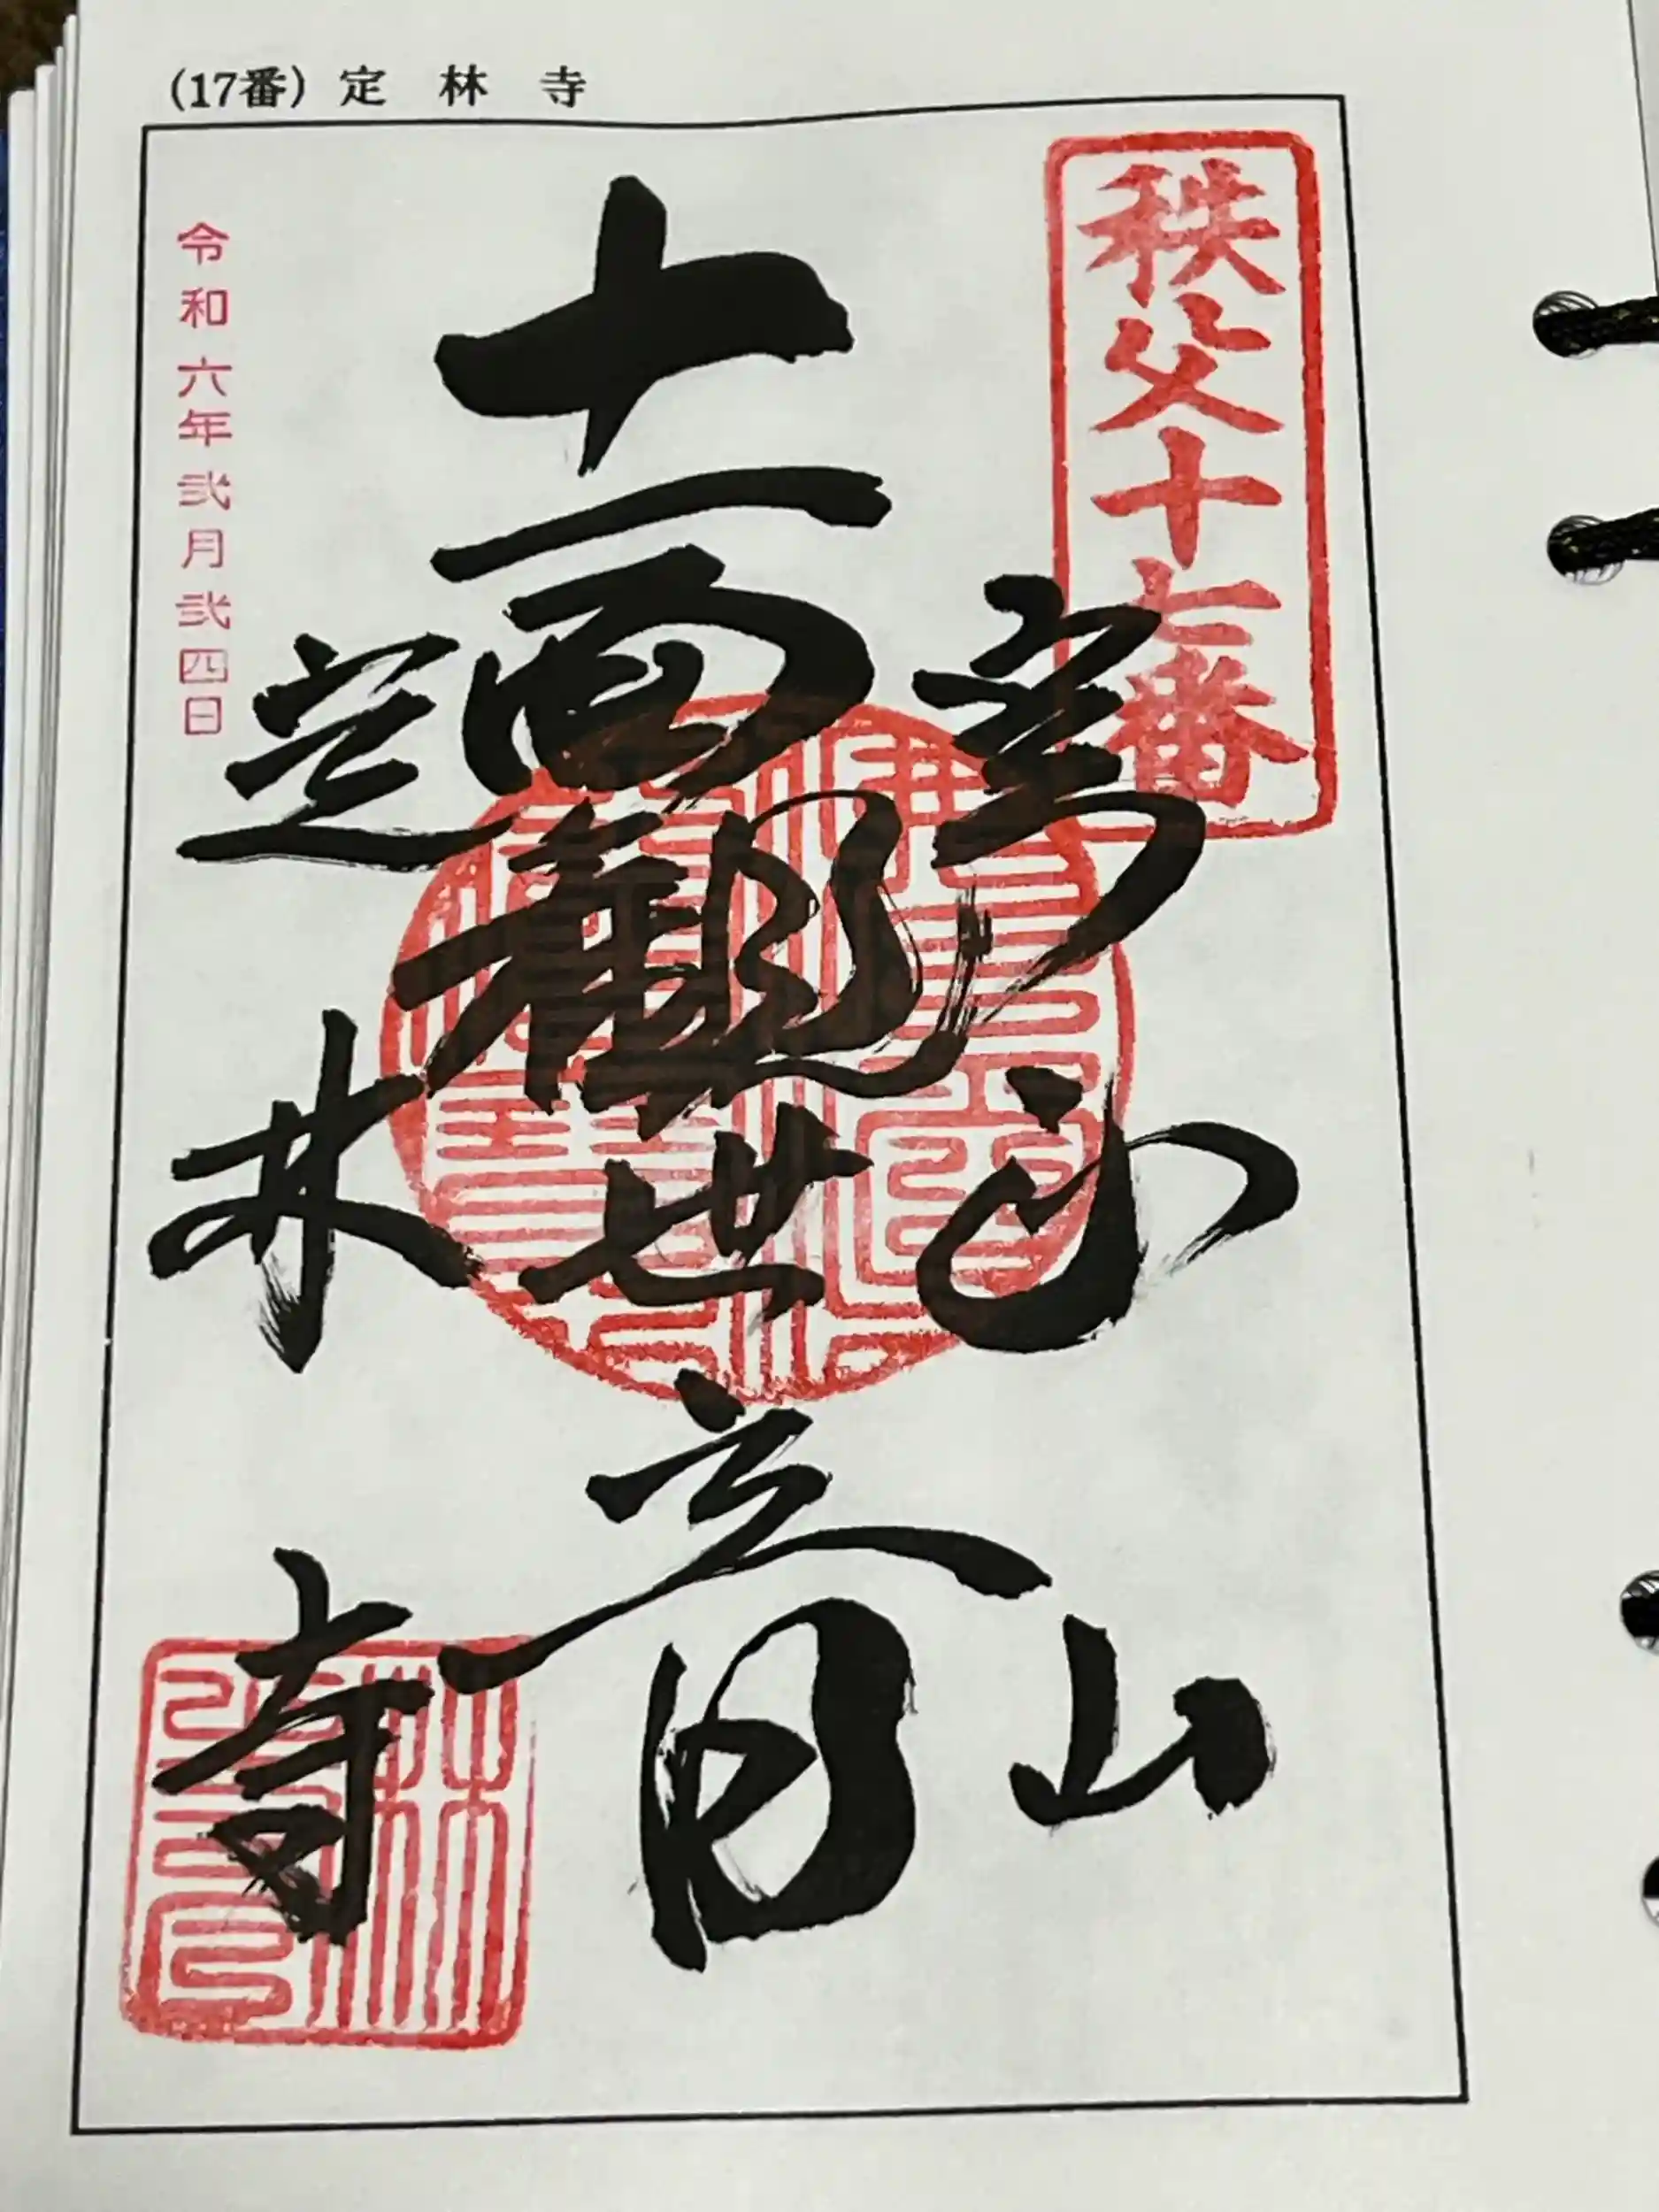 (17番) 定林寺
秩父十七番
実正山
十一面観世音
定林寺
令和六年弐月弐四日